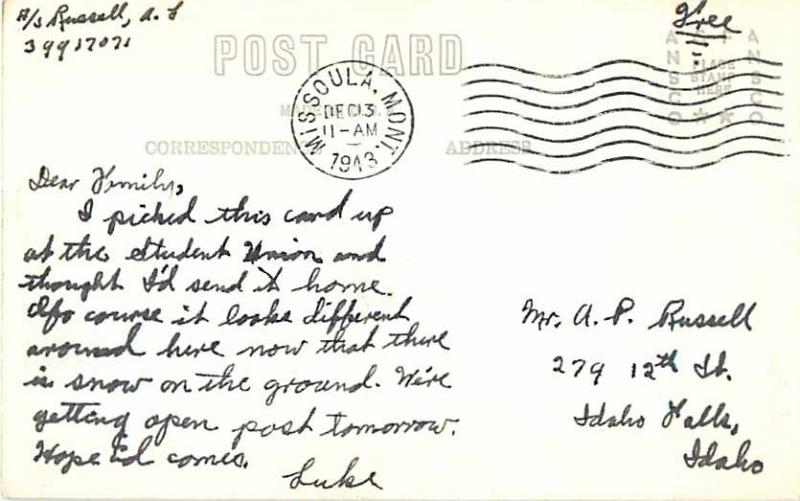 A/S Russell, A. L
39917071
Free
POST CARD
ANSCO
ANSCO
PLACE
STAMP
HERE
MISSOULA, MONT.
DEC 13
11-AM
1943
MADE
CORRESPONDEN
ADDRESS
Dear Family,
I picked this card up
at the Student Union and
thought I'd send it home.
Of course it looks different
around here now that there
is snow on the ground. We're
getting open post tomorrow.
Hope Ed comes.
Luke
Mr. A. P. Russell
279 12th St.
Idaho Falls,
Idaho